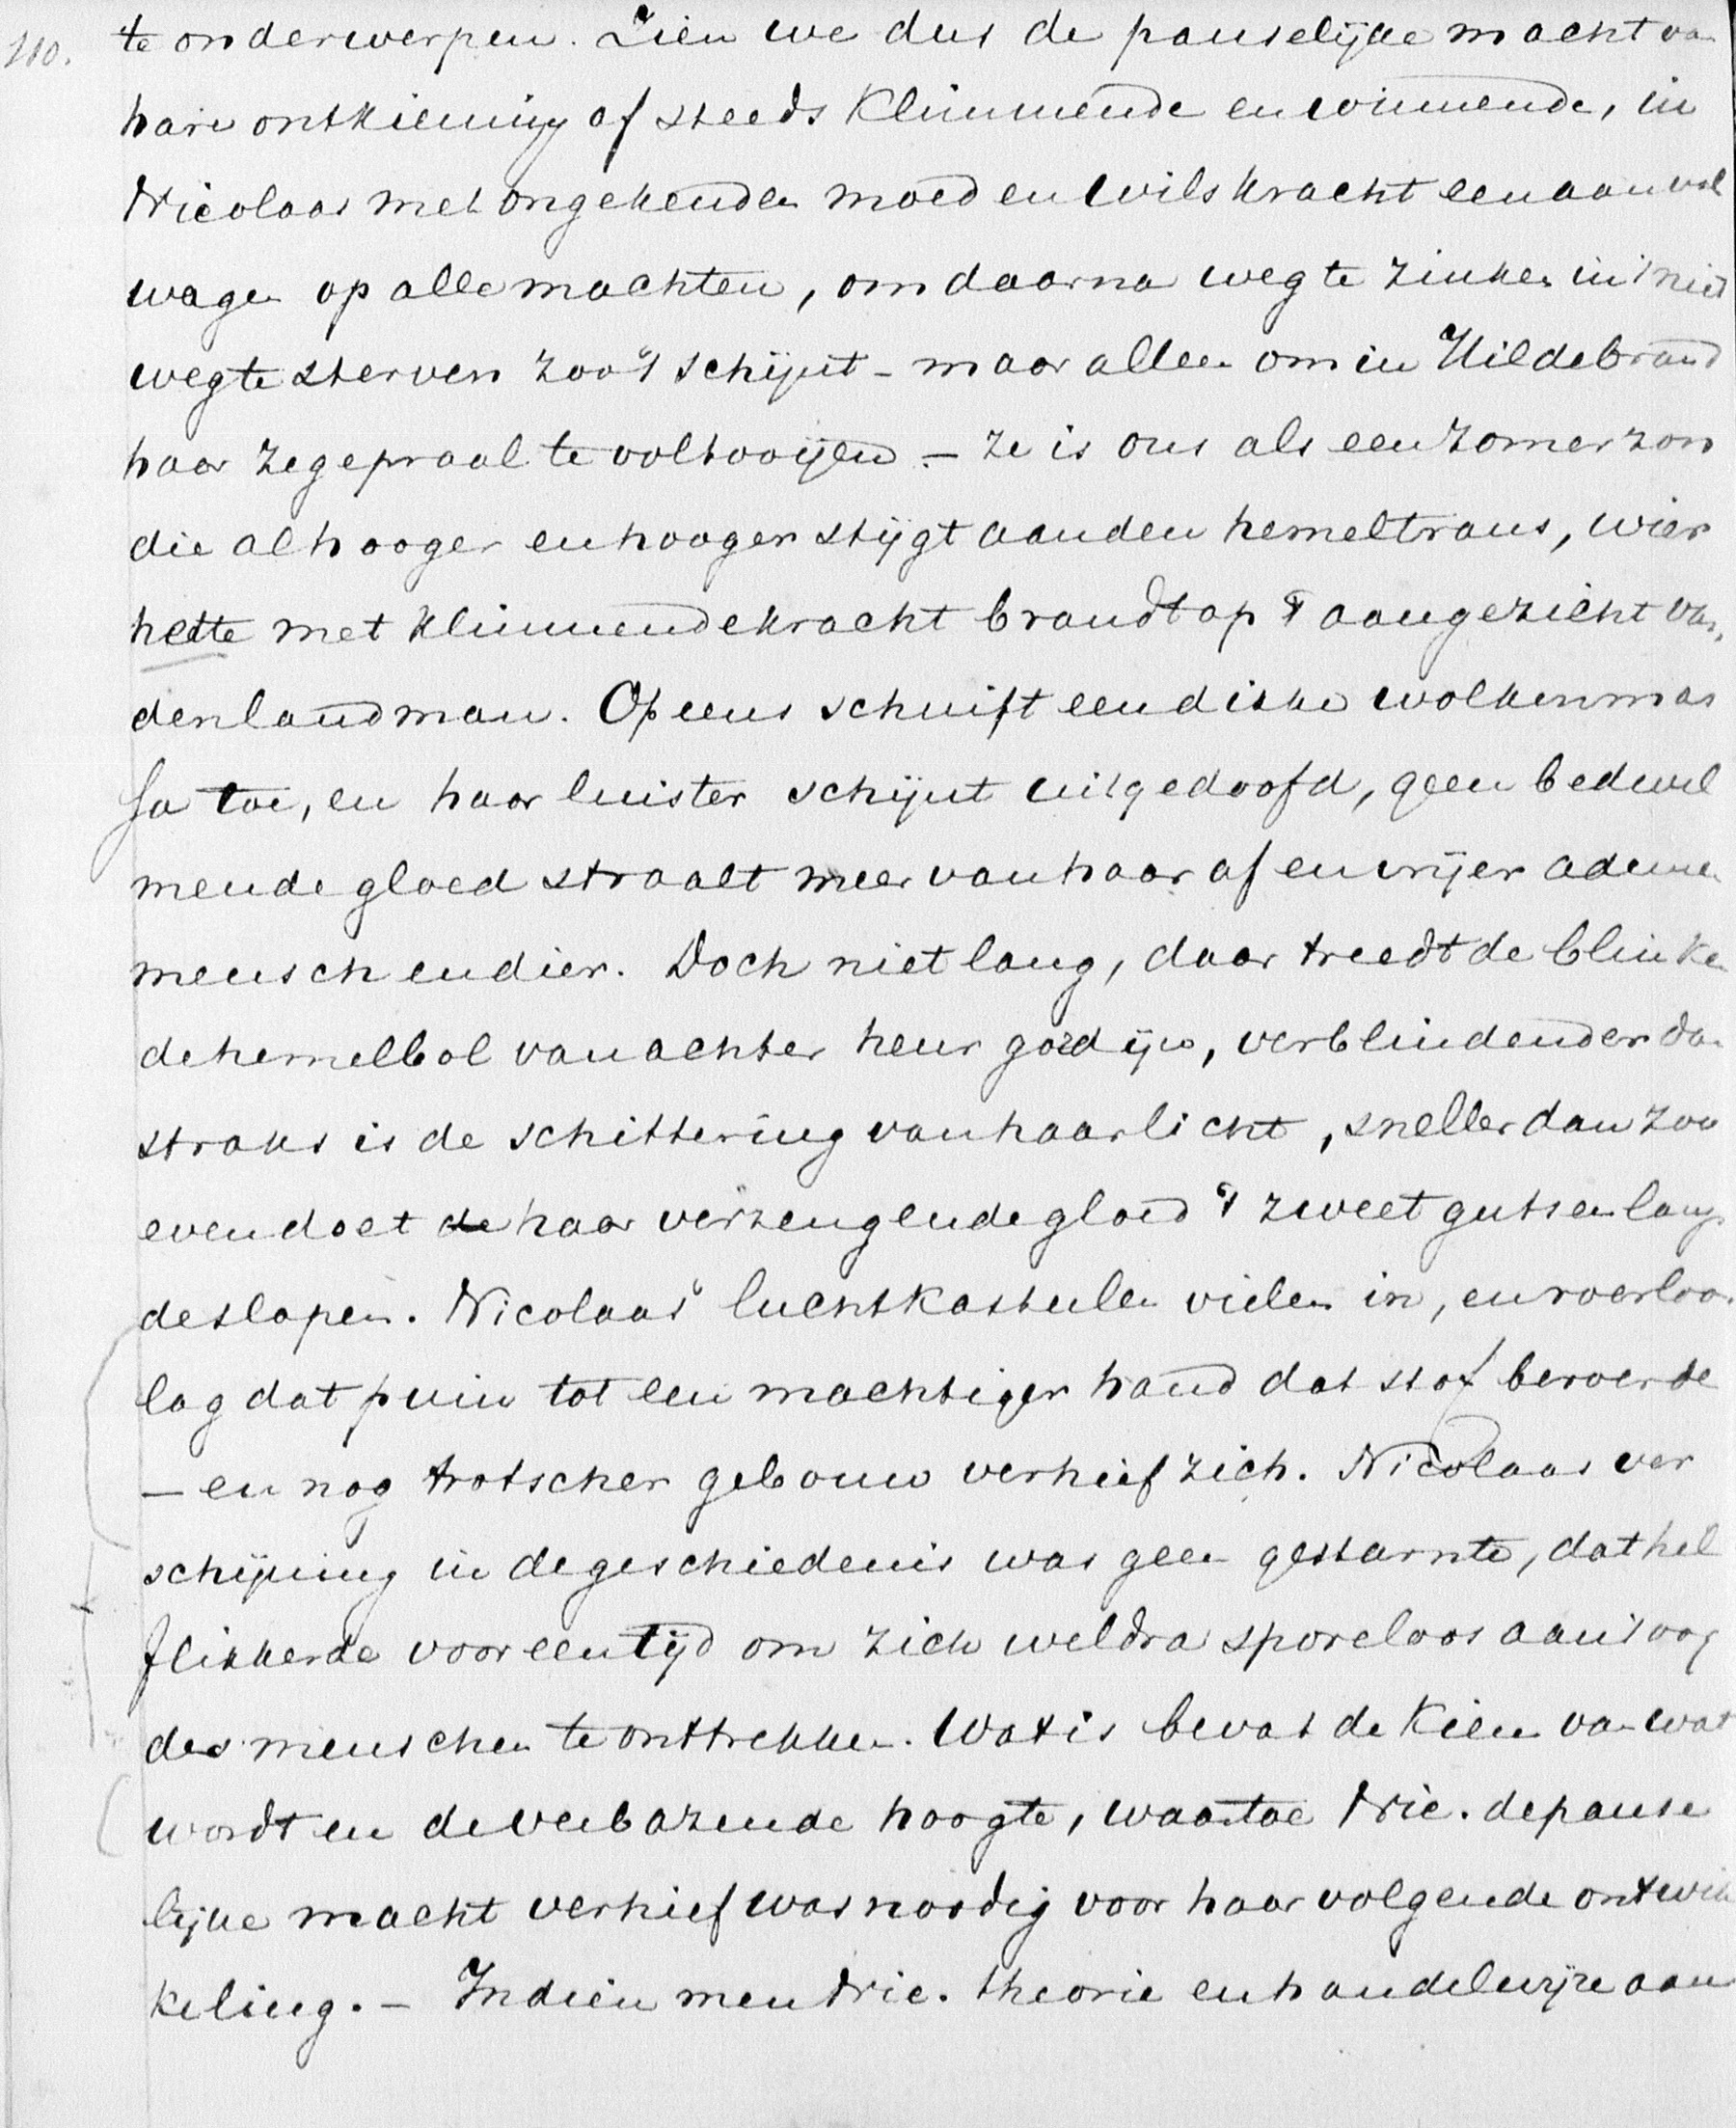 110. te onderwerpen. Zien we dus de pauselijke macht van
hare ontkieming af steeds klimmende en winnende, in
Nicolaas met ongekenden moed en wilskracht een aanval
wagen op alle machten, om daarna weg te zinken in 't niet
weg te sterven zoo 't schijnt - maar alleen om in Hildebrand
haar zegepraal te voltooijen - ze is ons als een zomerzon
die al hooger en hooger stijgt aan den hemeltrans, wier
hette met klimmende kracht brandt op 't aangezicht van
den landman. Opeens schuift een dikke wolkenmas
sa toe, en haar luister schijnt uitgedoofd, geen bedwel
mende gloed straalt meer van haar af en vrijer ademen
mensch en dier. Doch niet lang, daar treedt de blinken
de hemelbol van achter heur gordijn, verblindender dan
straks is de schittering van haar licht, sneller dan zoo
even doet de haar verzengende gloed 't zweet gutsen langs
de slapen. Nicolaas' luchtkasteelen vielen in, en roerloos
lag dat puin tot een machtiger hand dat stof beroerde
- en nog trotscher gebouw verhief zich. Nicolaas ver
schijning in de geschiedenis was geen gestarnte, dat hel
flikkerde voor een tijd om zich weldra spoorloos aan 't oog
des menschen te onttrekken. Wat is bevat de kiem van wat
wordt en de verbazende hoogte, waartoe Nic. de pause
lijke macht verhief was noodig voor haar volgende ontwik
keling. - Indien men Nic. theorie en handelwijze aan